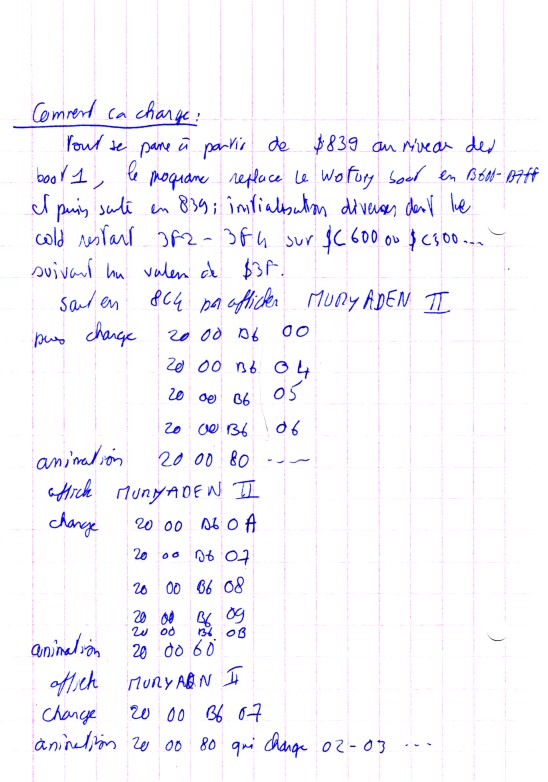 Comment ca charge :
Tout se passe à partir de $839 au niveau des
boot 1, le programe replace le Wofury boot en B600-B7FF
et puis saute en 839 ; initialisation diverses dont le
cold restart 3F2 - 3F4 sur $C600 ou $C500...
suivant la valeur de $3F.
saut en 8C4 pr afficher MURYADEN II
puis charge 20 00 B6 00
20 00 B6 04
20 00 B6 05
20 00 B6 06
animation 20 00 80 ----
affiche MURYADEN II
charge 20 00 B6 0A
20 00 B6 07
20 00 B6 08
20 00 B6 09
20 00 B6 0B
animation 20 00 60
affich MURYADEN II
charge 20 00 B6 07
animation 20 00 80 qui charge 02-03 ...